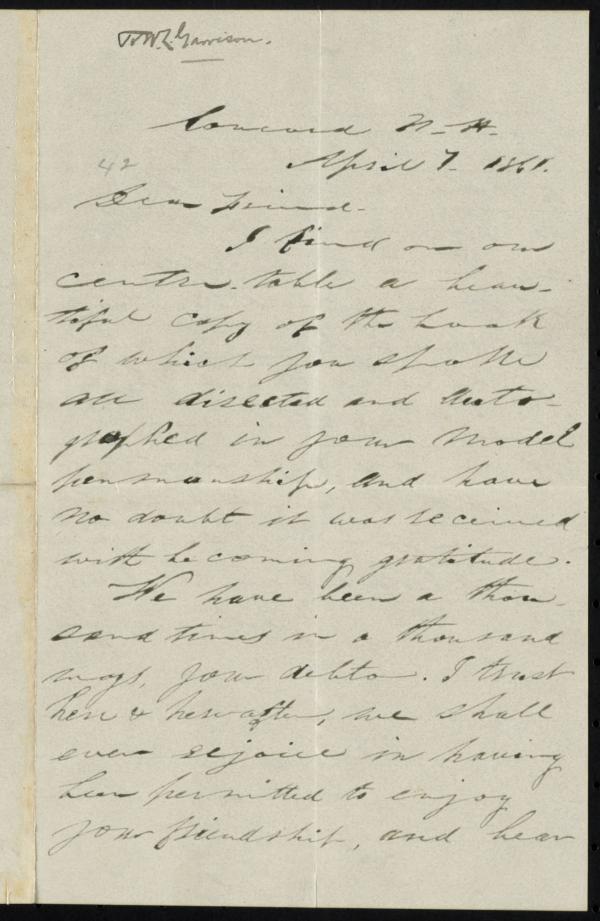 To W. L. Garrison.
Concord N. H.
42
April 7. 1861.
Dear friend.
I find on our
centre-table a beau-
tiful copy of the book
of which you spoke
all directed and auto-
graphed in your model
penmanship, and have
no doubt it was received
with becoming gratitude.
We have been a thou-
sand times in a thousand
ways, your debtor. I trust
here & hereafter, we shall
ever rejoice in having
been permitted to enjoy
your friendship, and hear